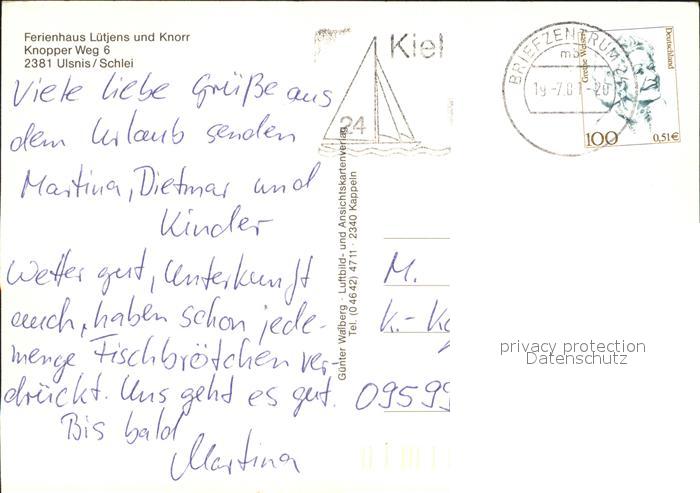 Ferienhaus Lütjens und Knorr
Knopper Weg 6
2381 Ulsnis/Schlei
Viele liebe Grüße aus
dem Urlaub senden
Martina, Dietmar und
Kinder
Wetter gut, Unterkunft
auch, haben schon jede-
menge Fischbrötchen ver-
drückt. Uns geht es gut.
Bis bald
Martina
Günter Walberg · Luftbild- und Ansichtskartenverlag
Tel. (04642) 4711 · 2340 Kappeln
Kiel
24
BRIEFZENTRUM 24
mb
Grethe Weiser
Deutschland
100
0,51€
M.
K.-
09599
privacy protection
Datenschutz